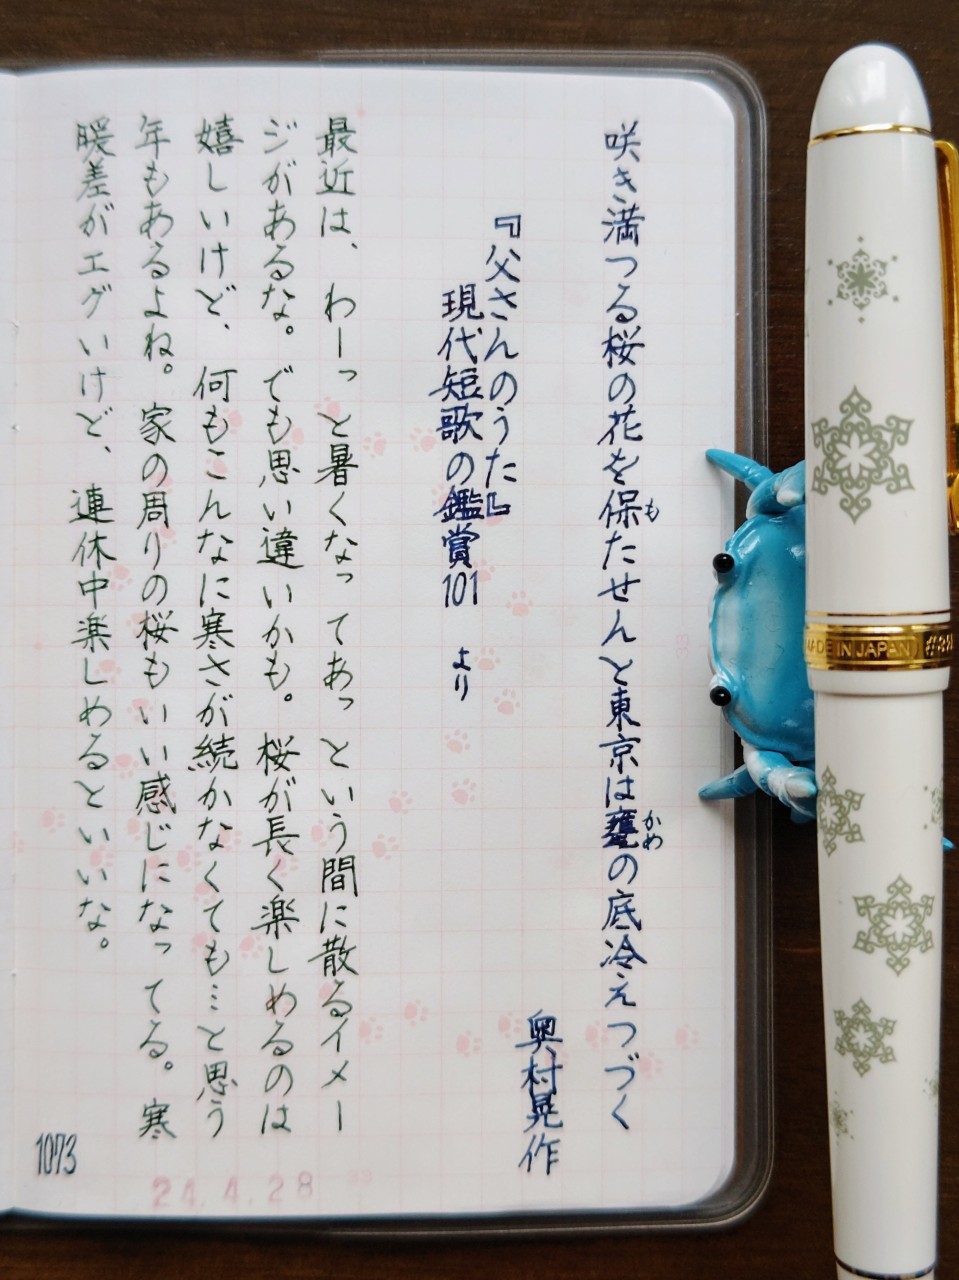 咲き満つる桜の花を保たせんと東京は甕の底冷えつづく
も
かめ
奥村晃作
『父さんのうた』
現代短歌の鑑賞101 より
最近は、わーっと暑くなってあっという間に散るイメー
ジがあるな。でも思い違いかも。桜が長く楽しめるのは
嬉しいけど、何もこんなに寒さが続かなくても…と思う
年もあるよね。家の周りの桜もいい感じになってる。寒
暖差がエグいけど、連休中楽しめるといいな。
1073
24.4.28
MADE IN JAPAN